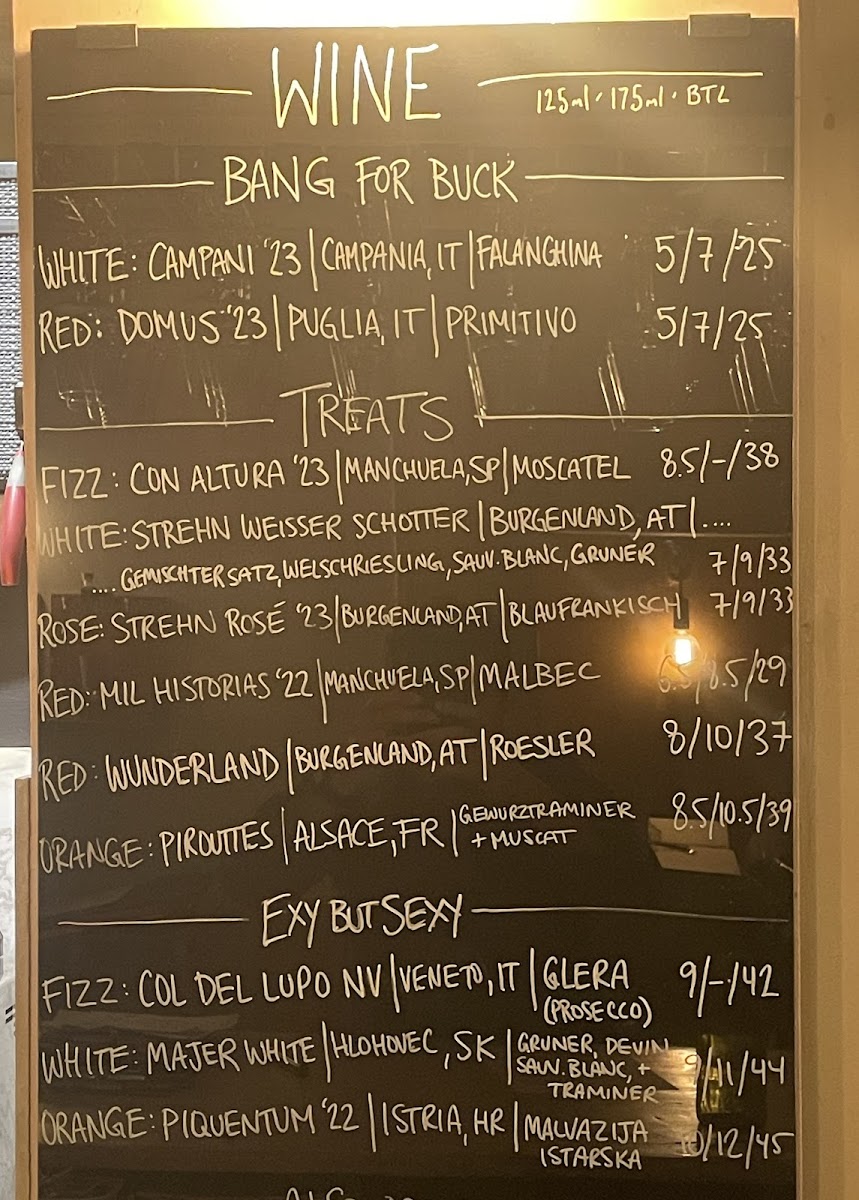 WINE
125ml · 175ml · BTL
BANG FOR BUCK
WHITE: CAMPANI '23 | CAMPANIA, IT | FALANGHINA 5/7/25
RED: DOMUS '23 | PUGLIA, IT | PRIMITIVO 5/7/25
TREATS
FIZZ: CON ALTURA '23 | MANCHUELA, SP | MOSCATEL 8.5/-/38
WHITE: STREHN WEISSER SCHOTTER | BURGENLAND, AT | ....
.... GEMISCHTER SATZ, WELSCHRIESLING, SAUV. BLANC, GRUNER 7/9/33
ROSE: STREHN ROSÉ '23 | BURGENLAND, AT | BLAUFRANKISCH 7/9/33
RED: MIL HISTORIAS '22 | MANCHUELA, SP | MALBEC 6.5/8.5/29
RED: WUNDERLAND | BURGENLAND, AT | ROESLER 8/10/37
ORANGE: PIROUTTES | ALSACE, FR | GEWURZTRAMINER 8.5/10.5/39
+ MUSCAT
EXY BUT SEXY
FIZZ: COL DEL LUPO NV | VENETO, IT | GLERA 9/-/42
(PROSECCO)
WHITE: MAJER WHITE | HLOHOVEC, SK | GRUNER, DEVIN 9/11/44
SAUV. BLANC, +
TRAMINER
ORANGE: PIQUENTUM '22 | ISTRIA, HR | MALVAZIJA 10/12/45
ISTARSKA